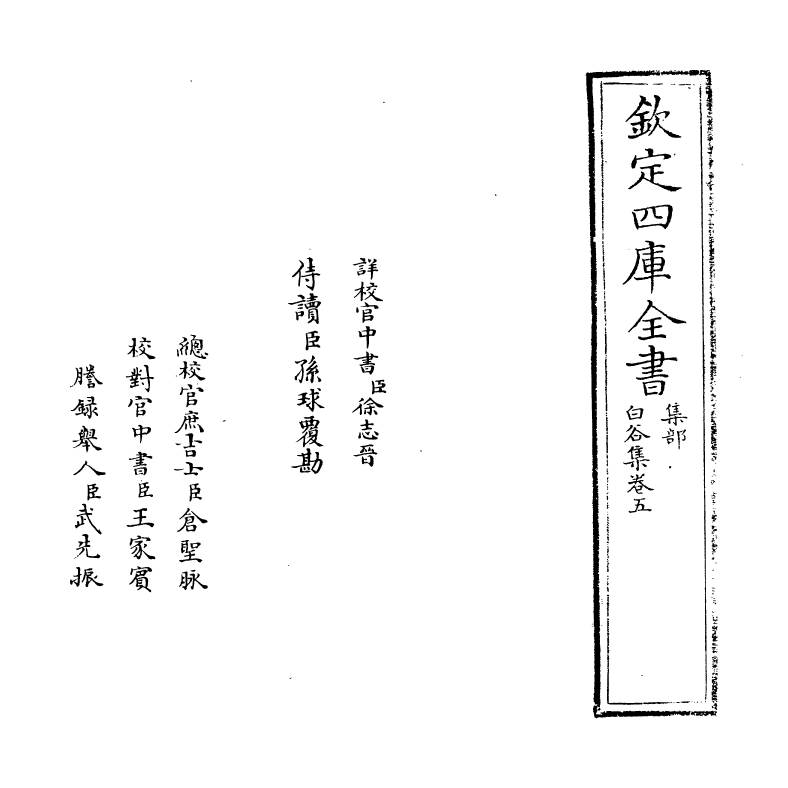 欽定四庫全書
集部
白谷集卷五
詳校官中書臣徐志晉
侍讀臣孫球覆勘
總校官庶吉士臣倉聖脉
校對官中書臣王家賓
謄録舉人臣武先振